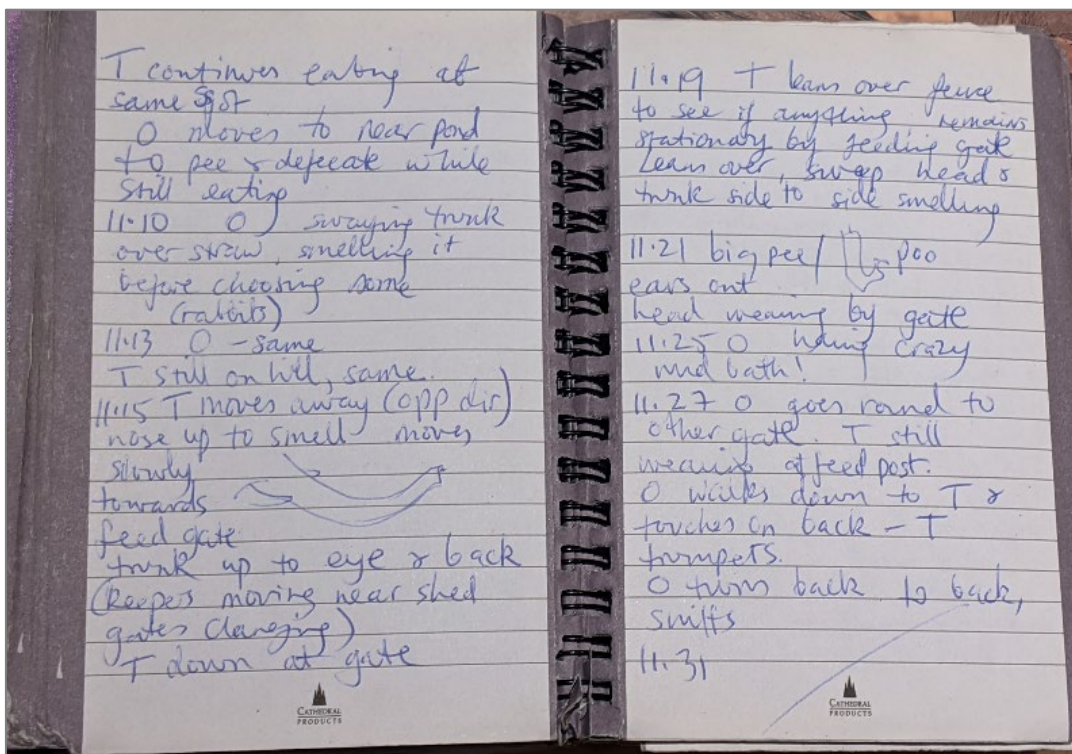 T continues eating at
same spot
O moves to near pond
to pee & defecate while
still eating
11.10 O swaying trunk
over straw, smelling it
before choosing some
(rabbits)
11.13 O - same
T still on hill, same.
11.15 T moves away (opp dir)
nose up to smell moves
slowly
towards
feed gate
trunk up to eye & back
(Keepers moving near shed
gates clanging)
T down at gate
CATHEDRAL
PRODUCTS
11.19 T leans over fence
to see if anything remains
stationary by feeding gate
Leans over, sweep head &
trunk side to side smelling
11.21 big pee / poo
ears out
head weaving by gate
11.25 O having crazy
mud bath!
11.27 O goes round to
other gate. T still
weaving at feed post.
O walks down to T &
touches on back - T
trumpets.
O turn back to back,
sniffs
11.31
CATHEDRAL
PRODUCTS